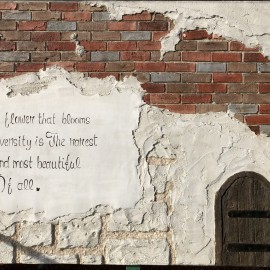 flower that blooms
versity is The rarest
nd most beautiful
Of all.